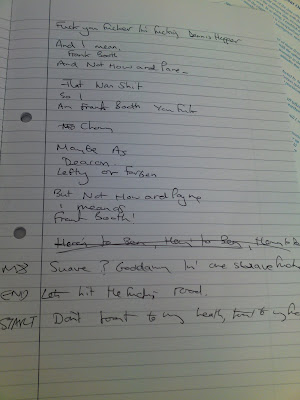 Fuck you fucker Im fucking Dennis Hopper
And I mean
Frank Booth
And Not Howard Payne
That Was Shit
So I
Am Frank Booth You Fuck
Maybe As
Deacon
Lefty or
But Not Howard Payne
I mean
Frank Booth!
Here's to Ben, Here's to Ben, Here's to
Suave? Goddamn Im one suave fuck
END Lets hit the fuckin road.
START Don't toast to my health, toast to my